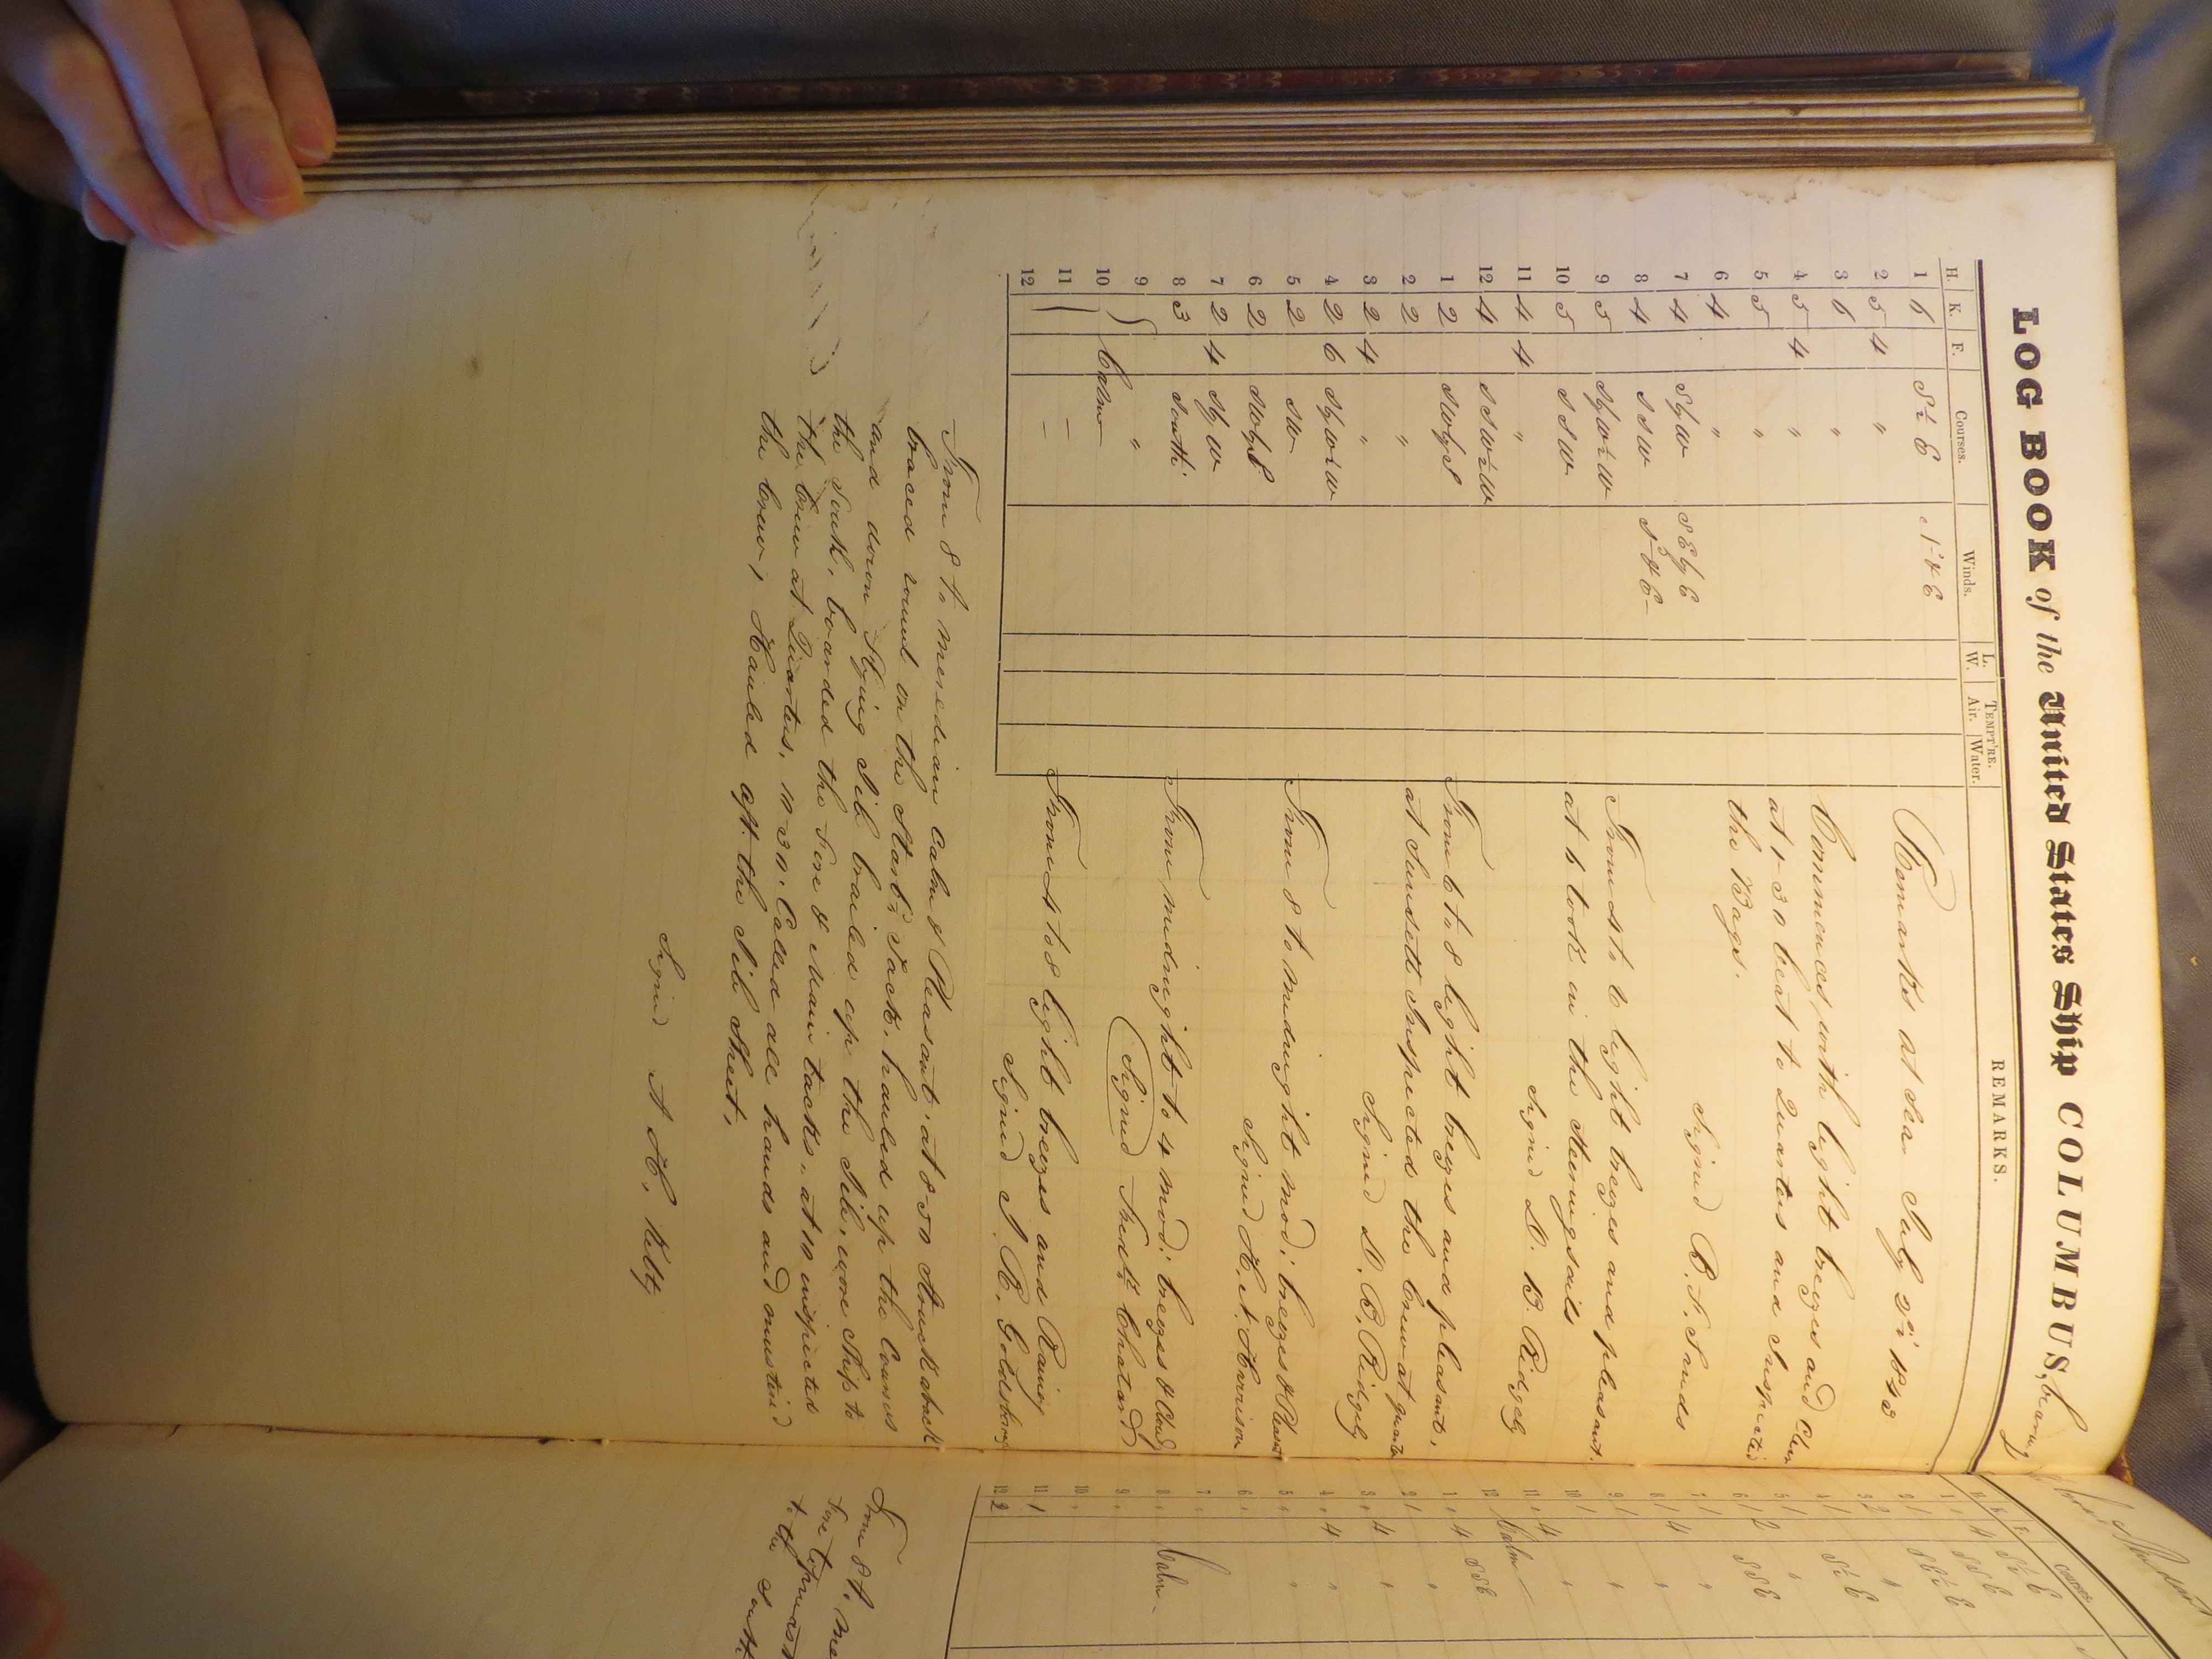 LOG BOOK of the United States Ship COLUMBUS,
H. K. F. Courses. Winds. L. W. TEMPT'RE. Air. Water. REMARKS.
1 6 S ½ E
2 5 4 "
3 6 "
4 5 4 "
5 5 "
6 4 "
7 4 SbyW SEbyE
8 4 SSW
9 5 SbyW½W
10 5 SSW
11 4 4 "
12 4 SSW½W
1 2 SWbyS
2 2 "
3 2 4 "
4 2 6
5 2 SW
6 2 SWbyS
7 2 4 SbyW
8 3 South
9 "
10 Calm
11 –
12 –
Remarks at Sea July
Commences with light breezes and Clear
at 1-30 beat to Quarters and Inspected
the Bags.
Signed B. F. Sands
From 4 to 6 light breezes and pleasant.
at 6 took in the Steeringsails
Signed D. B. Ridgely
From 6 to 8 light breezes and pleasant,
at Sunsett Inspected the Crew at quarters
Signed D. B. Ridgely
From 8 to midnight mod: breezes & Pleasant
Signed H. N. Harrison
From midnight to 4 mod: breezes & Cloudy
Signed Fred: Chatard
From 4 to 8 light breezes and Rainy
Signed J. R. Goldsborough
From 8 to meredian Calm & Pleasant, at 8-50 Struck aback
braced round on the Starb: Tack, hauled up the Courses
and down Flying Jib brailed up the Jib, wore Ship to
the South, boarded the Fore & Main tacks, at 10 inspected
the Crew at Quarters, 10-30. Called all hands and mustered
the Crew, Hauled aft the Jib Sheet,
Signed A. H. Kilty
H. K. F. Courses
1 4 SSE
2 1
3 2 "
4 1 S½E
5 1 "
6 1 2 SSE
7 1 "
8 1 4 "
9 1 "
10 1 "
11 4
12 Calm
1 4 SSE
2 1 "
3 4 "
4 4 "
5 "
6
7
8 Calm
9
10
11 1
12 2
From 8 to me
Fore topmast
to the South